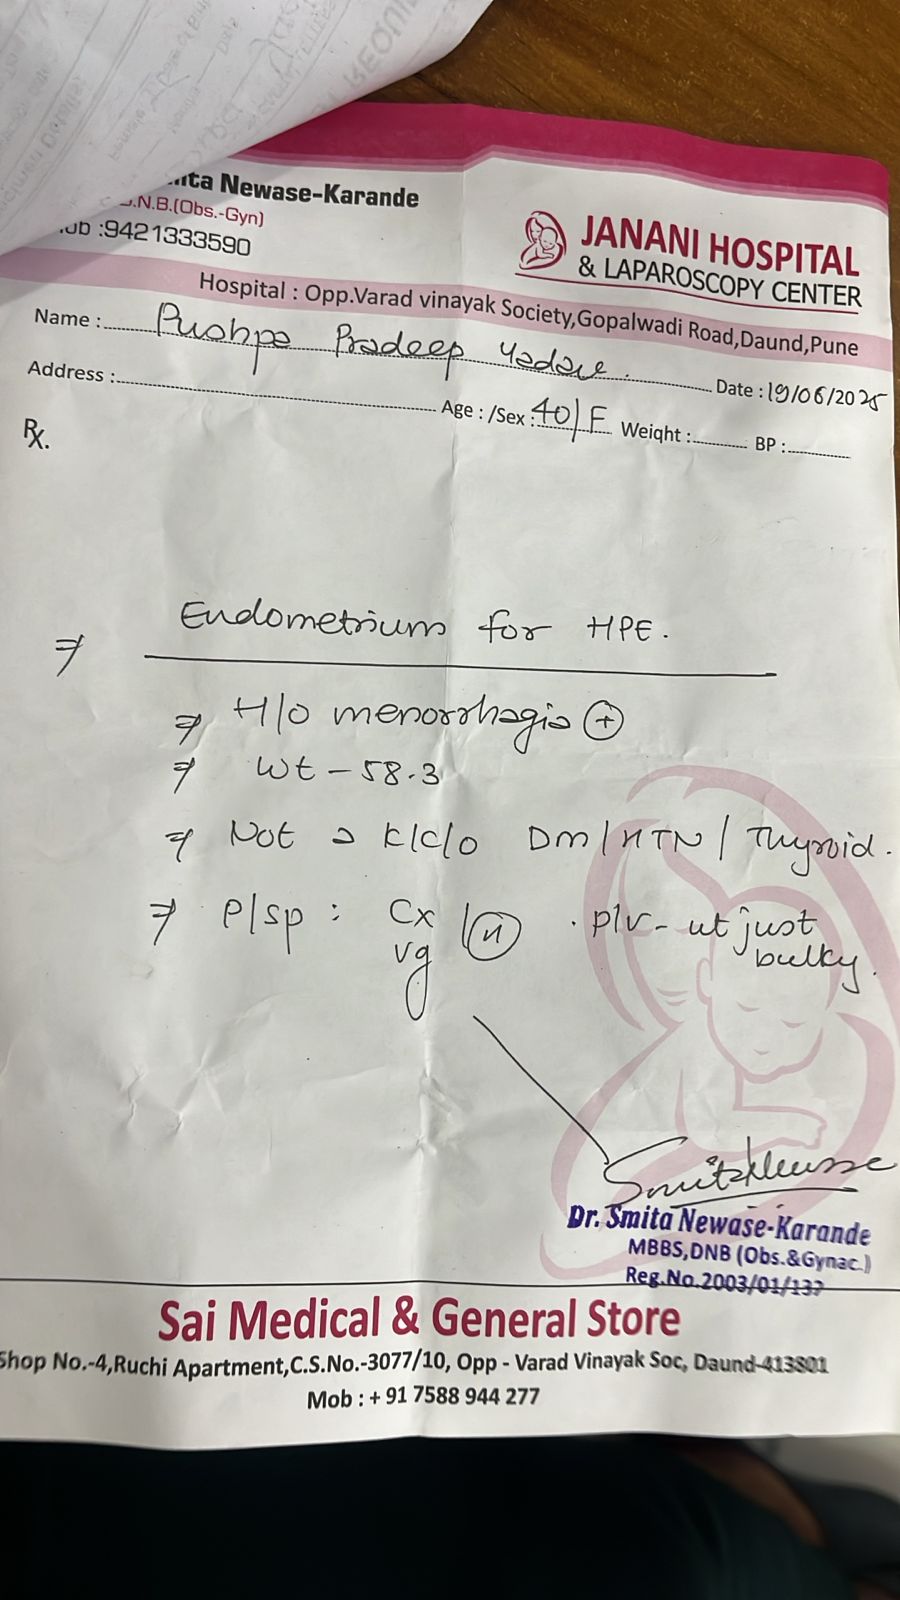 Newase-Karande
.N.B.(Obs.-Gyn)
:9421333590
JANANI HOSPITAL
& LAPAROSCOPY CENTER
Hospital : Opp.Varad vinayak Society,Gopalwadi Road,Daund,Pune
Name : Pushpa Pradeep Yadav
Date : 19/06/2025
Address :
Age : /Sex : 40/F Weight : BP :
Rx.
⇒ Endometrium for HPE.
⇒ H/o menorrhagia (+)
⇒ wt - 58.3
⇒ Not a K/C/O Dm/HTN/Thyroid.
⇒ P/sp : Cx
vg (N) . p/v - ut just
bulky.
Dr. Smita Newase-Karande
MBBS,DNB (Obs.&Gynac.)
Reg.No.2003/01/137
Sai Medical & General Store
Shop No.-4,Ruchi Apartment,C.S.No.-3077/10, Opp - Varad Vinayak Soc, Daund-413801
Mob : + 91 7588 944 277